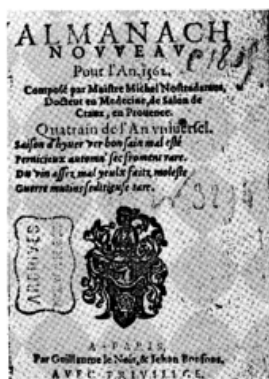 ALMANACH
NOVVEAV
Pour l'An, 1562.
Composé par Maistre Michel Nostradamus,
Docteur en Medecine, de Salon de
Craux, en Prouence.
Quatrain de l'An vniuersel.
Saison d'hyuer ver bon sain mal esté
Pernicieux automn' sec froment rare.
Du vin assez mal yeulx faitz moleste
Guerre mutins seditieuse tare.
ARCHIVES
A PARIS,
Par Guillaume le Noir, & Iehan Bonfons,
AVEC PRIVILEGE.